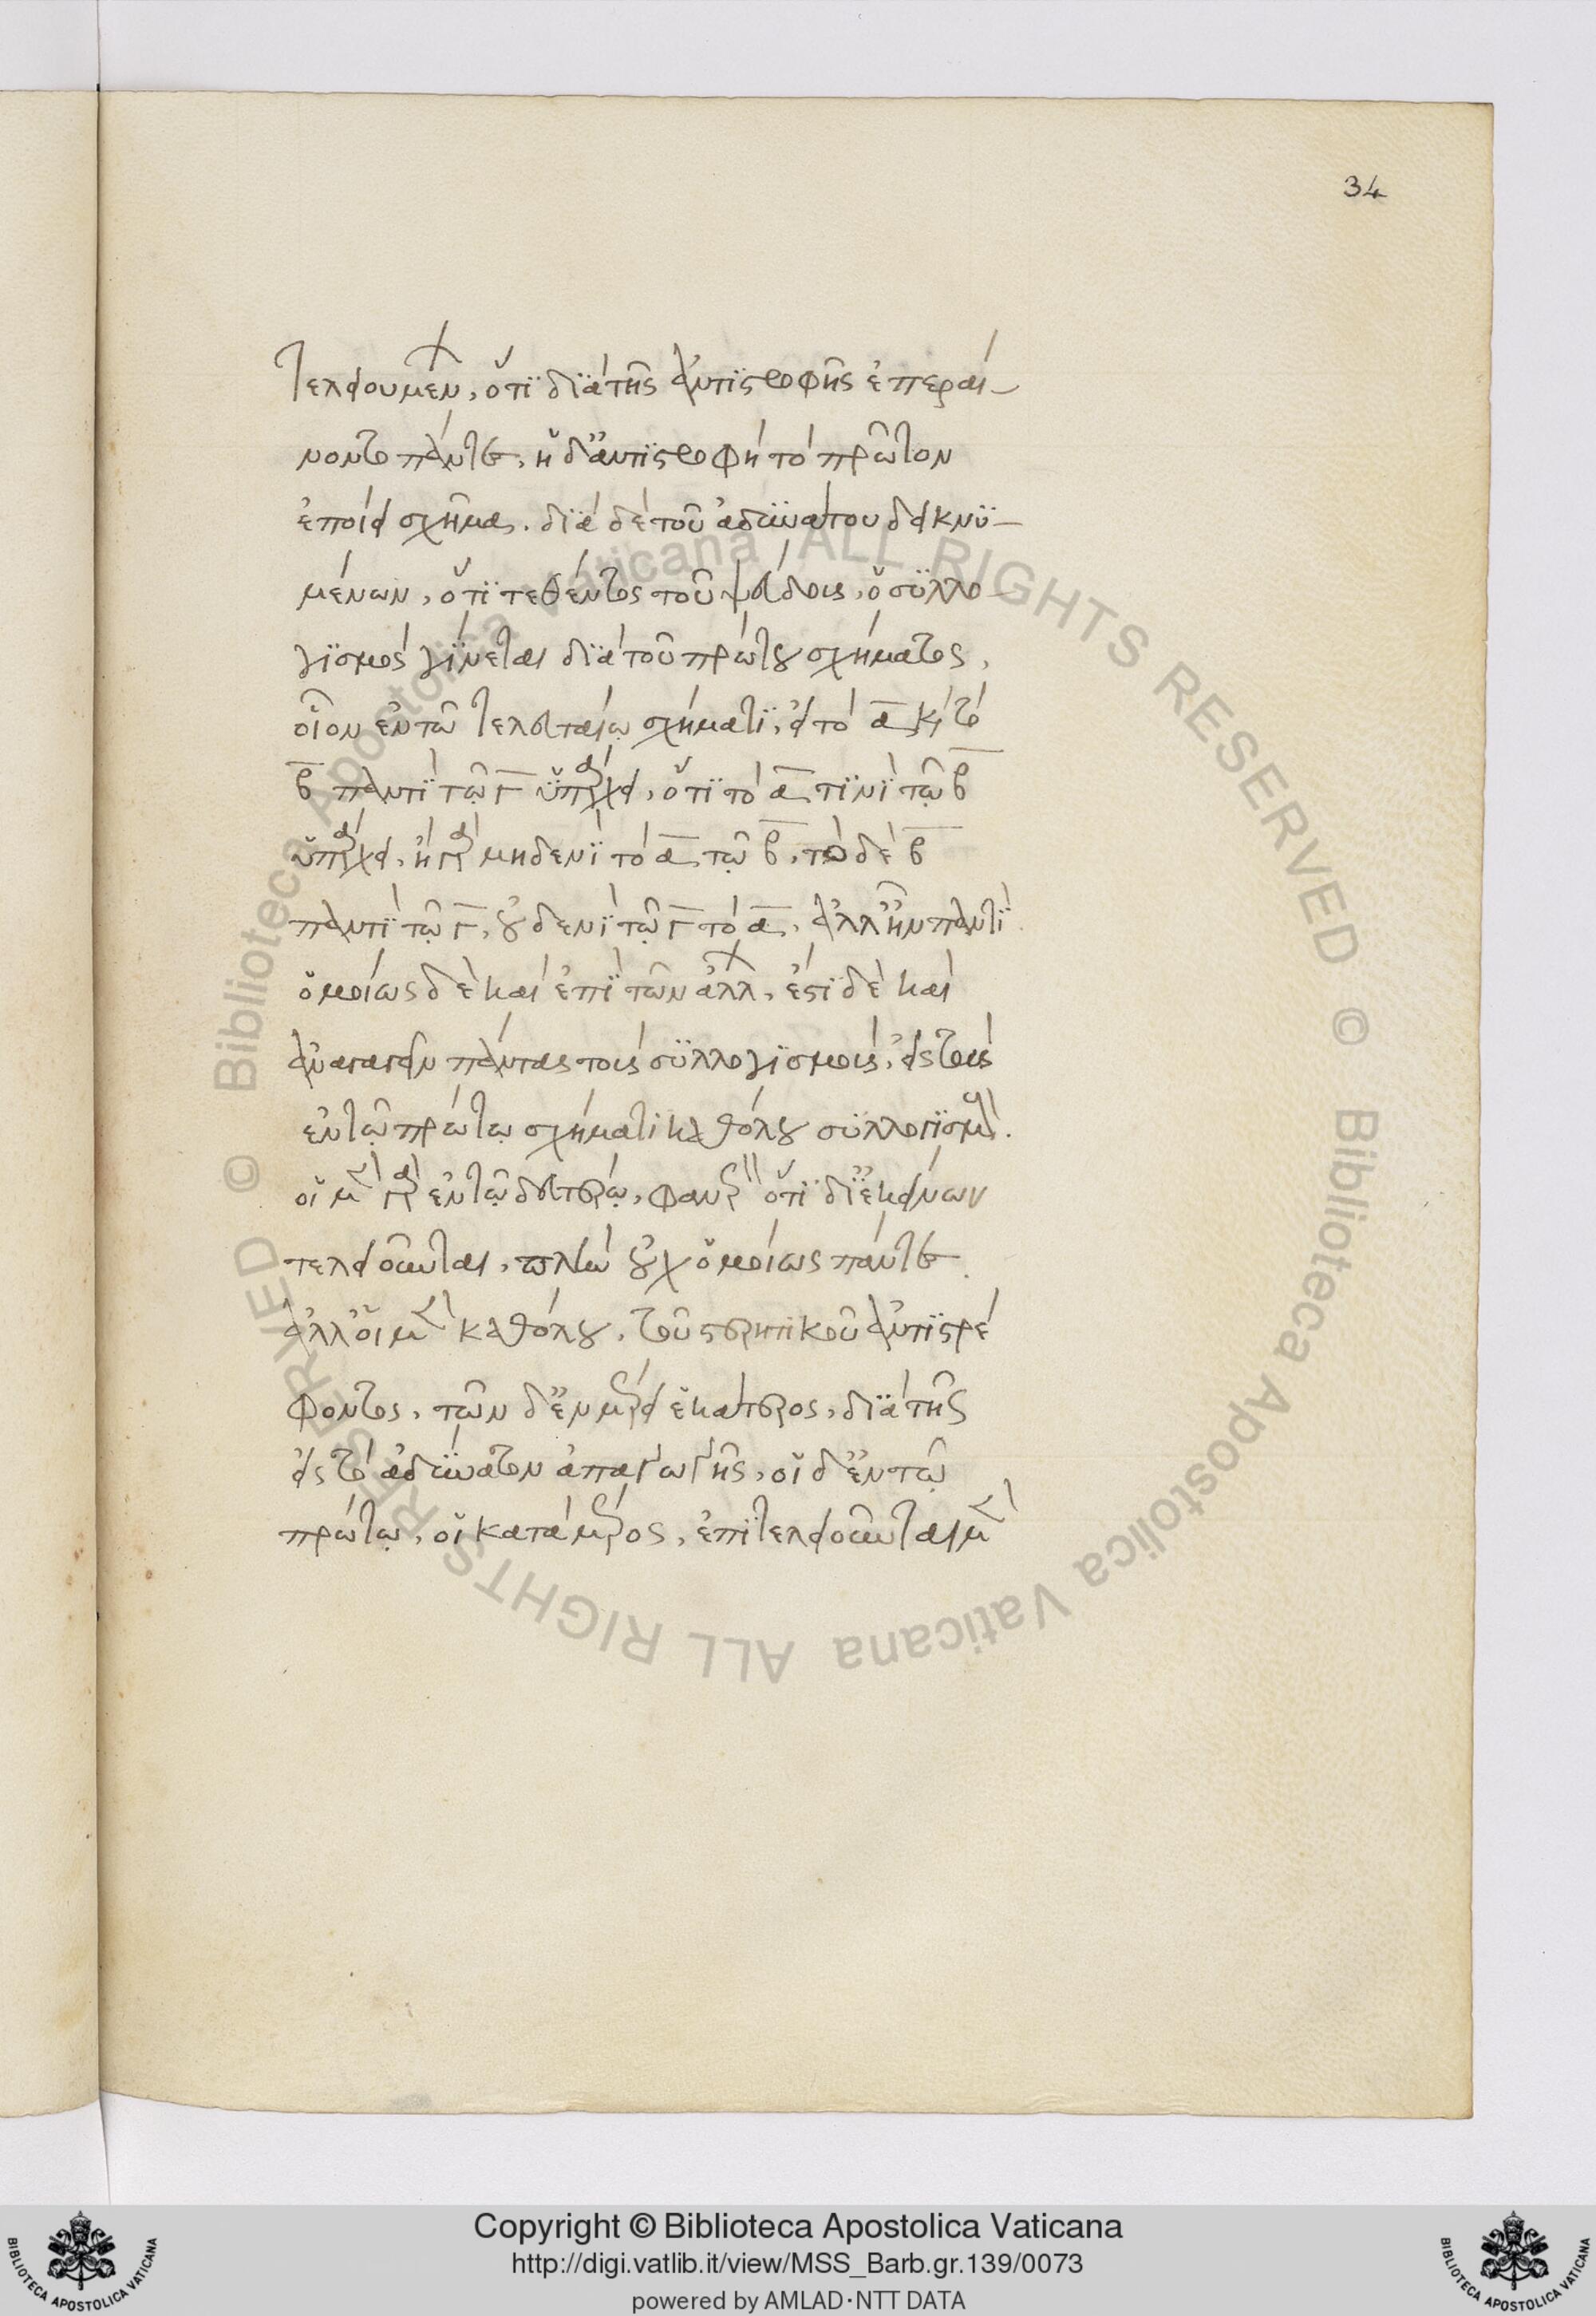 34
τελειουμένων, ὅτι διὰ τῆς ἀντιστροφῆς ἐπεραί-
νοντο πάντες, ἡ δ' ἀντιστροφὴ τὸ πρῶτον
ἐποίει σχῆμα. διὰ δὲ τοῦ ἀδυνάτου δεικνυ-
μένων, ὅτι τεθέντος τοῦ ψεύδους, ὁ συλλο
γισμὸς γίνεται διὰ τοῦ πρώτου σχήματος,
οἷον ἐν τῶ τελευταίω σχήματι, εἰ τὸ α καὶ τὸ
β παντὶ τῶ γ ὑπάρχει, ὅτι τὸ α τινὶ τῶ β
ὑπάρχει, εἰ γὰρ μηδενὶ τὸ α τῶ β, τὸ δὲ β
παντὶ τῶ γ, οὐδενὶ τῶ γ τὸ α, ἀλλ' ἦν παντὶ
ὁμοίως δὲ καὶ ἐπὶ τῶν ἄλλων, ἔστι δὲ καὶ
ἀναγαγεῖν πάντας τοὺς συλλογισμοὺς, εἰς τοὺς
ἐν τῶ πρώτω σχήματι καθόλου συλλογισμούς.
οἱ μὲν γὰρ ἐν τῶ δευτέρω, φανερὸν ὅτι δι' ἐκείνων
τελειοῦνται, πλὴν οὐχ ὁμοίως πάντες.
ἀλλ' οἱ μὲν καθόλου, τοῦ στερητικοῦ ἀντιστρέ
φοντος, τῶν δ' ἐν μέρει ἑκάτερος, διὰ τῆς
εἰς τὸ ἀδύνατον ἀπαγωγῆς, οἱ δ' ἐν τῶ
πρώτω, οἱ κατὰ μέρος, ἐπιτελειοῦνται μὲν
Copyright © Biblioteca Apostolica Vaticana
http://digi.vatlib.it/view/MSS_Barb.gr.139/0073
powered by AMLAD·NTT DATA
© Biblioteca Apostolica Vaticana ALL RIGHTS RESERVED © Biblioteca Apostolica Vaticana ALL RIGHTS RESERVED
BIBLIOTECA APOSTOLICA VATICANA
BIBLIOTECA APOSTOLICA VATICANA